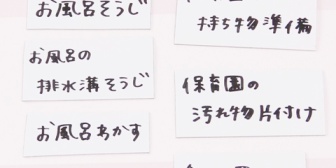 お風呂そうじ
お風呂の
排水溝そうじ
お風呂わかす
持ち物準備
保育園の
汚れ物片付け